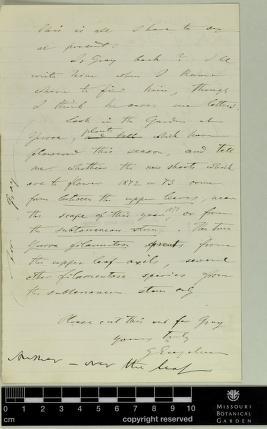 This is all I have to say
at present.
Is Gray back? I'll
write him when I know
where to find him, though
I think he owes me letters.
Look in the Garden at
Yucca plants which have
flowered this season, and tell
me, whether the new shoots which
are to flower 1872 or 73 come
from between the upper leaves, near
the scape of this year, or from
the subterranean stem. The true
Yucca filamentosa sprouts from
the upper leaf axils, several
other filamentose species from
the subterranean stem only
Please cut this out for Gray
Yours truly
G. Engelmann
Answer — over the leaf
for Gray
0 1 2 3 4 5 6 7 8 9 10
cm copyright reserved
MISSOURI
BOTANICAL
GARDEN